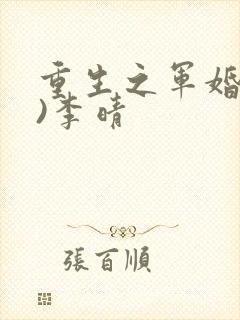 重生之军婚
)李晴
張百順